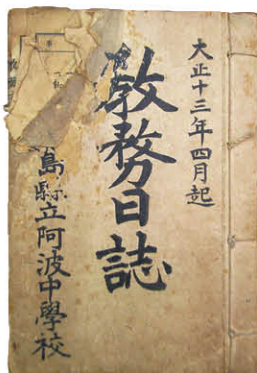 大正十三年四月起
教務日誌
島縣立阿波中學校